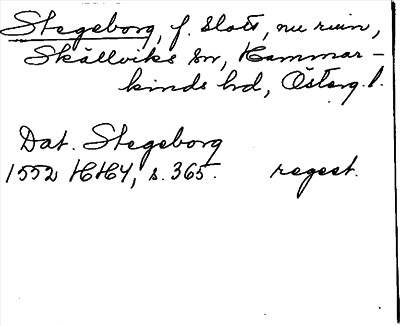 Stegeborg, f. slott, nu ruin,
Skällviks sn, Hammar-
kinds hd, Österg.l.
Dat. Stegeborg
1552 HH4, s. 365. regest.